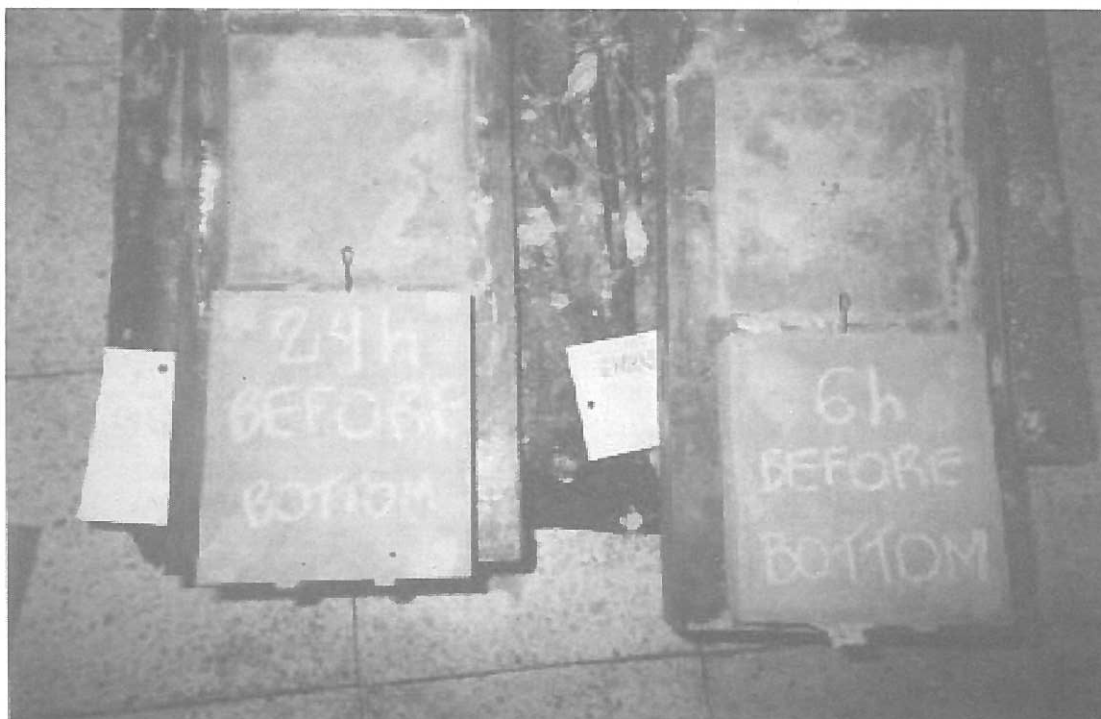 24h
BEFORE
BOTTOM
6h
BEFORE
BOTTOM